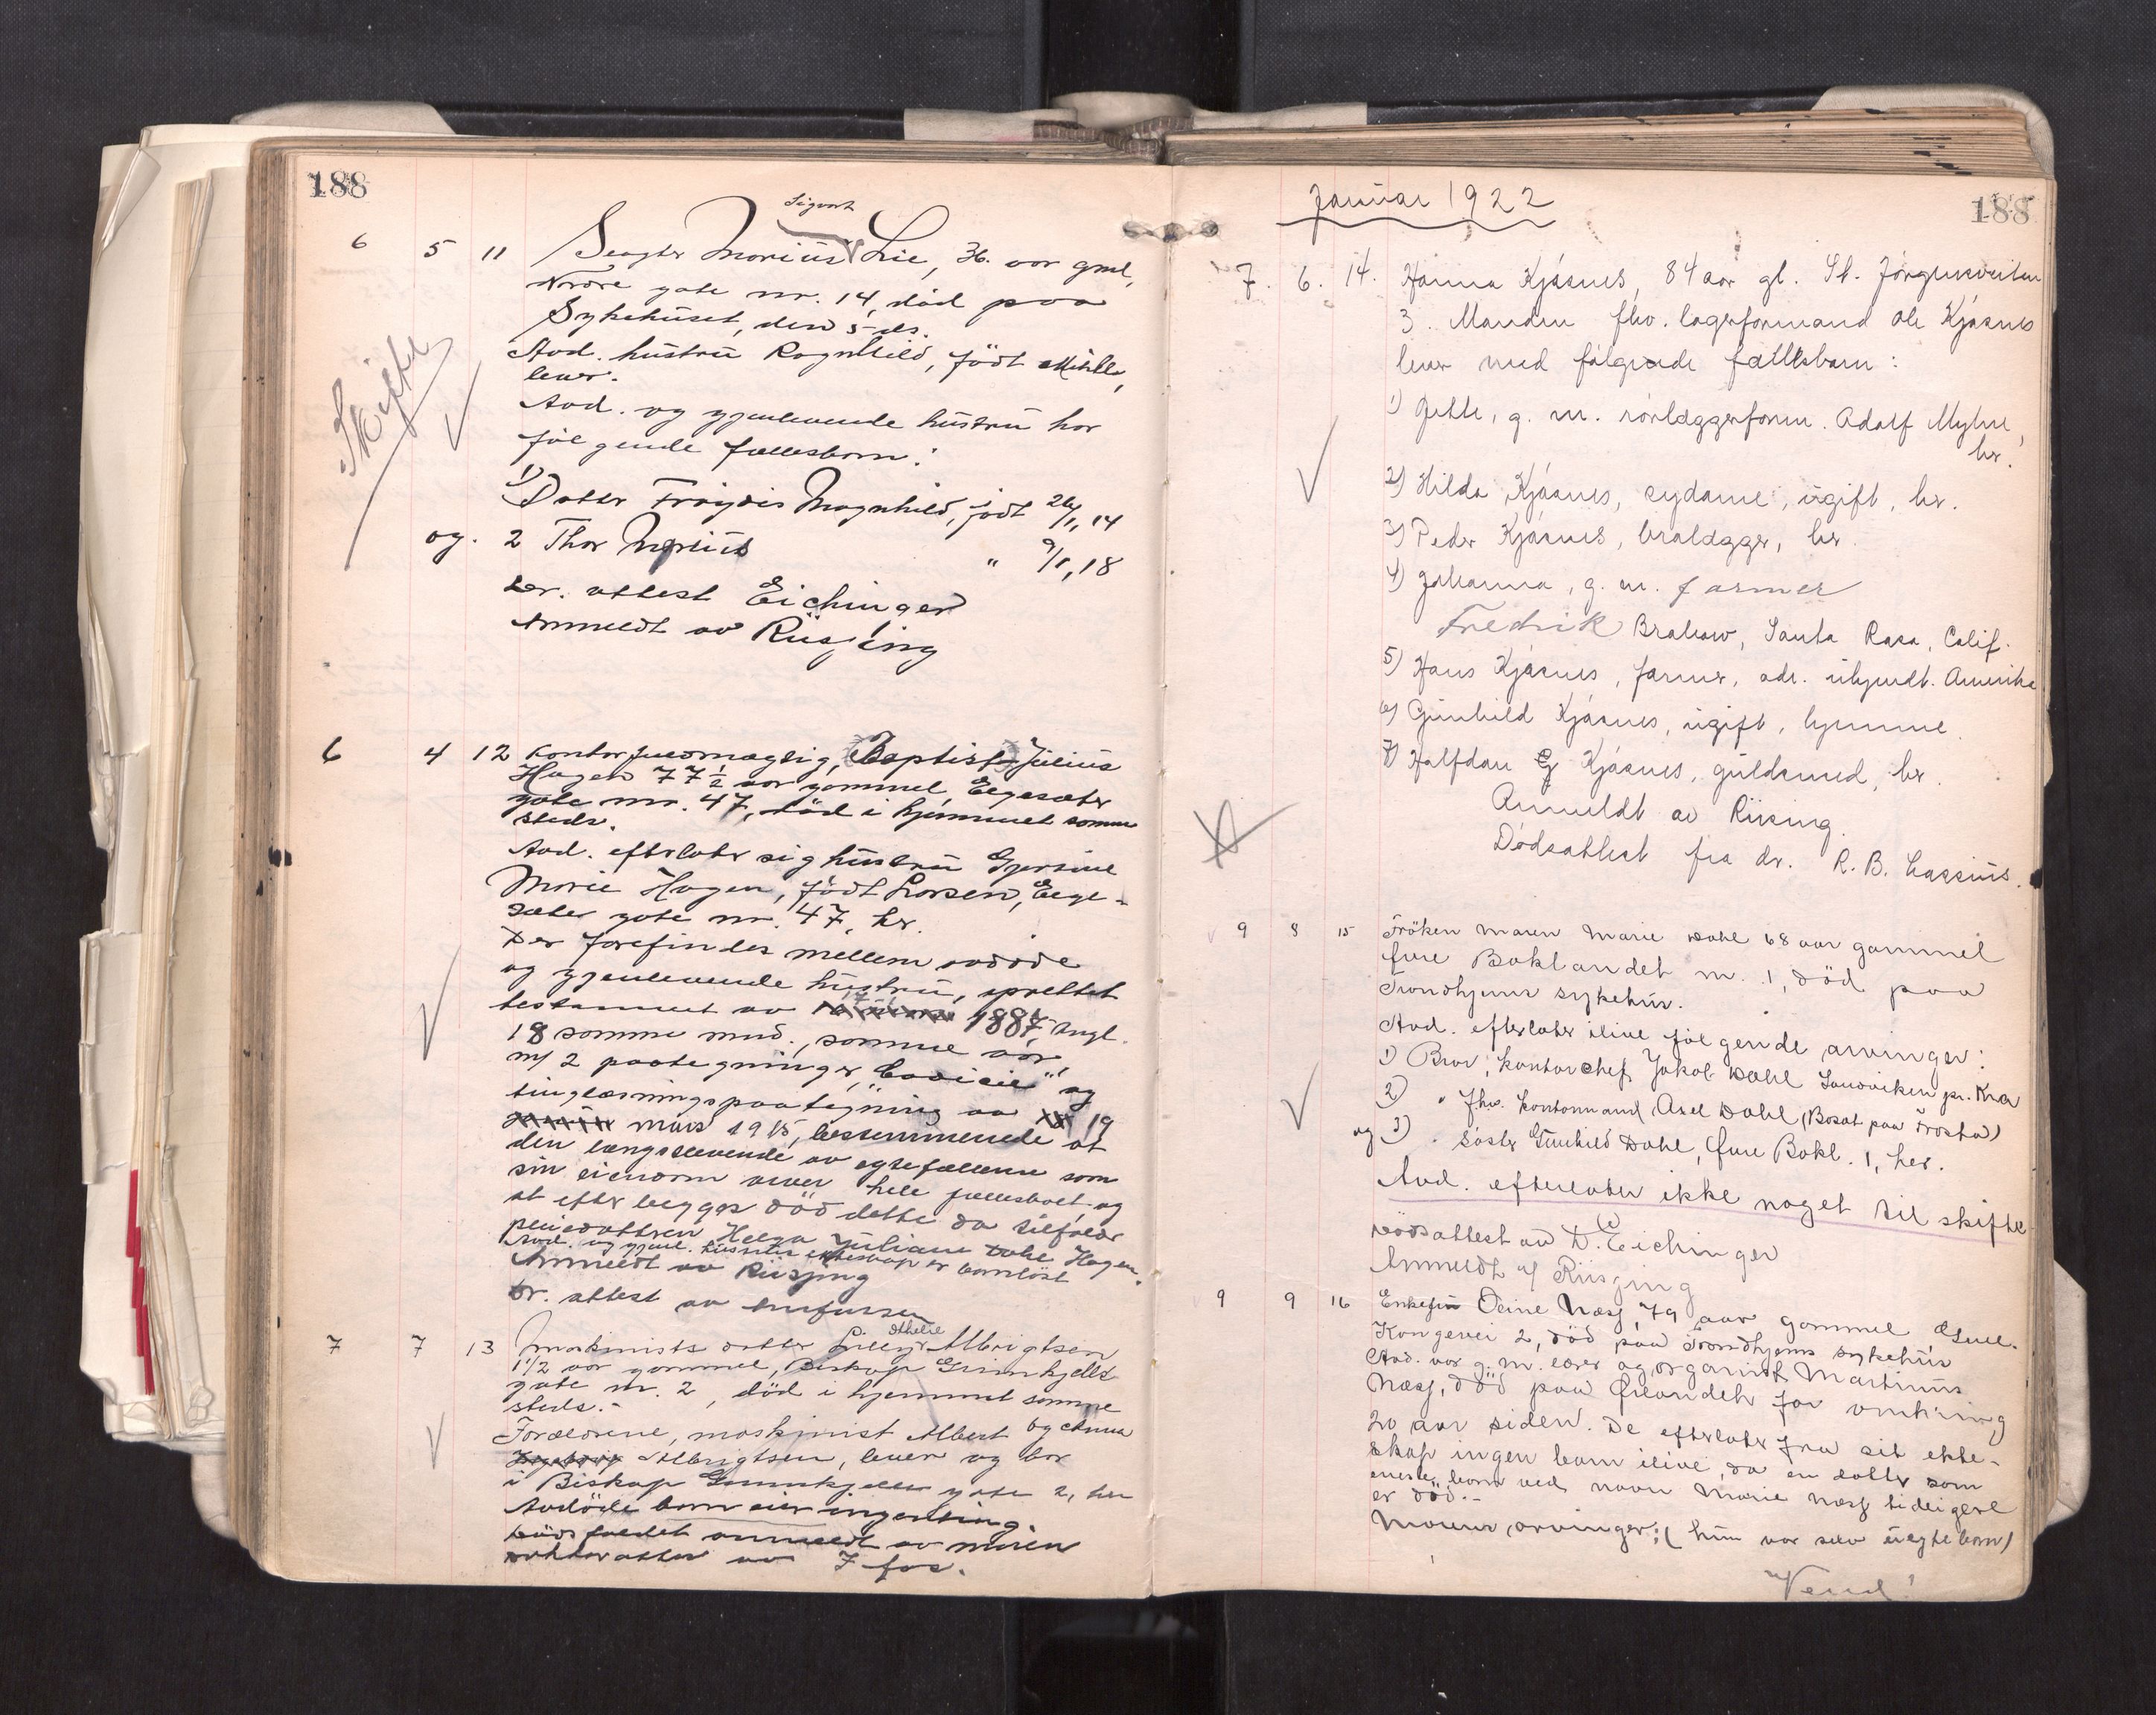 188
6 5 11 Slagter Marius Sigvart Lie, 36. aar gml,
Nedre gate nr. 14, död paa
Sykehuset, den 5 ds.
Avd. hustru Ragnhild, födt
lever.
Avd. og gjenlevende hustru har
følgende fællesbarn:
1) Datter Fröydis Magnhild, födt 26/1, 14
og. 2 Thor Marius " 9/1, 18
Dr. attest Eichinger
Anmeldt av Riising
Skifte
6 4 12 Kontorfuldmægtig, Baptist Julius
Hagen 77 1/2 aar gammel, Elgesæter
gate nr. 47, död i hjemmet samme
steds.
Avd. efterlater sig hustru Gjersine
Marie Hagen, født Larsen, Elge-
sæter gate nr. 47, her.
Der forefindes mellem avdöde
og gjenlevende hustru, oprettet
testament av 1887, tingl.
18 samme mnd., samme aar,
m/ 2 paategninger, "Codicil" og
tinglæsningspaategning av 19
mars 1915, bestemmende at
den længstlevende av egtefællerne som
sin eiendom arver hele fællesboet, og
at efter begges död dette da tilfalder
pleiedatteren Helga Juliane Dahl Hagen.
Avd. og gjenl. hustrus ekteskap er barnlöst
Anmeldt av Riising
Dr. attest av
7 7 13 Maskinists datter Lilly Othelie Albrigtsen
1 1/2 aar gammel, Biskop Grimkjells
gate nr. 2, död i hjemmet samme
steds.-
Forældrene, maskinist Albert og Anna
Albrigtsen, lever og bor
i Biskop Grimkjells gate 2, her
Avdöde barn eier ingenting.
Dödsfaldet anmeldt av moren
av 7 fos.
Januar 1922
188
7. 6. 14. Hanna Kjøsnes, 84 aar gl. St. Jørgensveiten
3. Manden fhv. lagerformand Ole Kjøsnes
lever med følgende fællesbarn:
1) Jette, g. m. rørlæggerform. Adolf Myhre,
her.
2) Hilda Kjøsnes, sydame, ugift, her.
3) Peder Kjøsnes, braldgger, her.
4) Johanna, g. m. farmer
Fredrik Brahow, Santa Rosa, Calif.
5) Hans Kjøsnes, farmer, adr. ubekjendt. Amerika
6) Gunhild Kjøsnes, ugift, hjemme.
7) Halfdan G Kjøsnes, guldsmed, her.
Anmeldt av Riising.
Dødsattest fra dr. R. B. Cassius.
9 8 15 Fröken Maren Marie Dahl 68 aar gammel
Øvre Baklandet nr. 1, död paa
Trondhjems sykehus.
Avd. efterlater ilive følgende arvinger:
1) Bror, kontorchef Jakob Dahl Sandviken pr. Kra
2) " fhv. Kontormand Axel Dahl (Bosat paa Frosta)
og 3) . Söster Gunhild Dahl, Øvre Bakl. 1, her.
Avd. efterlater ikke noget til skifte
Dödsattest av Dr. Eichinger
Anmeldt af Riising
9 9 16 Enkefru Oline Næss, 79 aar gammel Gml.
Kongevei 2, död paa Trondhjems sykehus
Avd. var g. m. lærer og organist Martinus
Næss, död paa Ørlandet for omkring
20 aar siden. De efterlater fra sit ekte-
skap ingen barn ilive, da en datter som
eneste barn ved navn Marie Næss tidligere
er död.-
Mornu arvinger: (hun var selv uægte barn)
Vend!